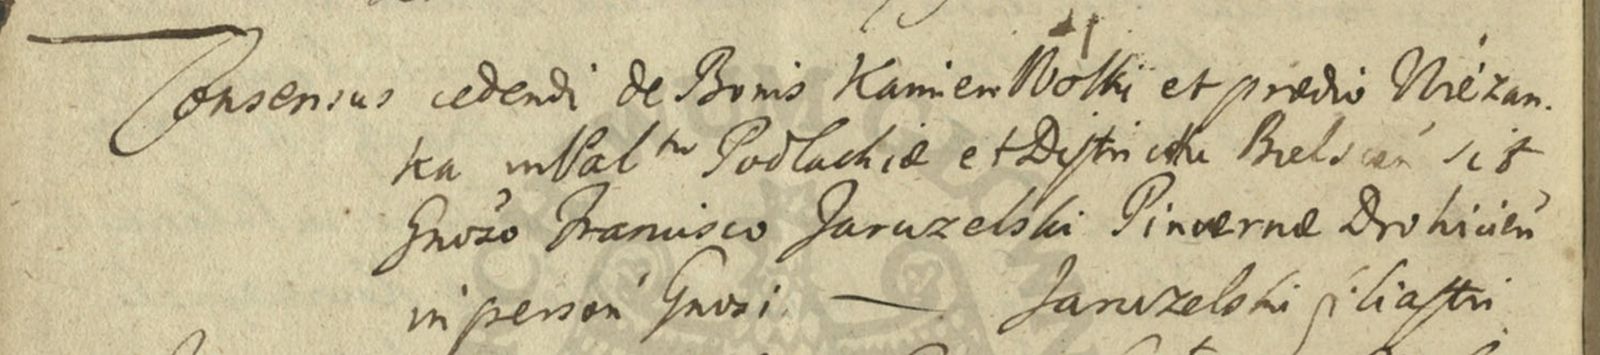 Consensus cedendi de Bonis Kamien Wolki et prædio Niézan.
ka in Pal tu Podlachiæ et Districtu Bielscen sit
Gnoso Francisco Jaruzelski Pincernæ Drohicien
in person Gnosi — Jaruzelski filiastri